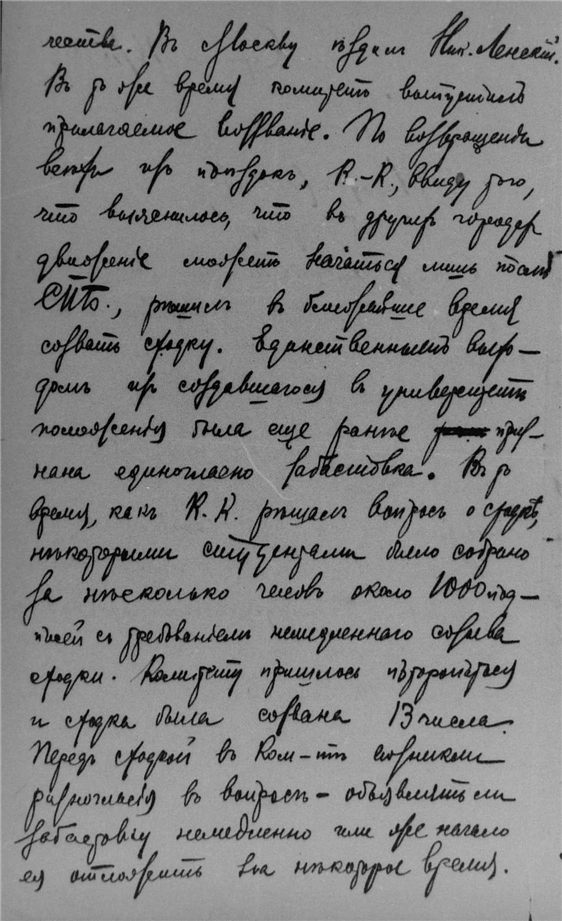 чества. Въ Москву ѣздилъ Ник. Ленскій.
Въ то же время комитетъ выпустилъ
прилагаемое воззваніе. По возвращеніи
изъ поѣздокъ, К.-К., ввиду того,
что выяснилось, что въ другихъ городахъ
движеніе можетъ начаться лишь послѣ
СПБ., рѣшилъ въ ближайшие время
созвать сходку. Единственнымъ выхо-
домъ изъ создавшагося въ университетѣ
положенія была еще ранѣе приз-
нана единогласно забастовка. Въ то
время, какъ К.К. рѣшалъ вопросъ о сходкѣ,
нѣкоторыми студентами было собрано
за нѣсколько часовъ около 1000 под-
писей съ требованіемъ немедленного созыва
сходки. Комитету пришлось поторопиться
и сходка была созвана 13 числа.
Передъ сходкой въ Ком-тѣ возникли
разногласія въ вопросѣ - объявлять ли
забастовку немедленно или же начало
ея отложить на нѣкоторое время.